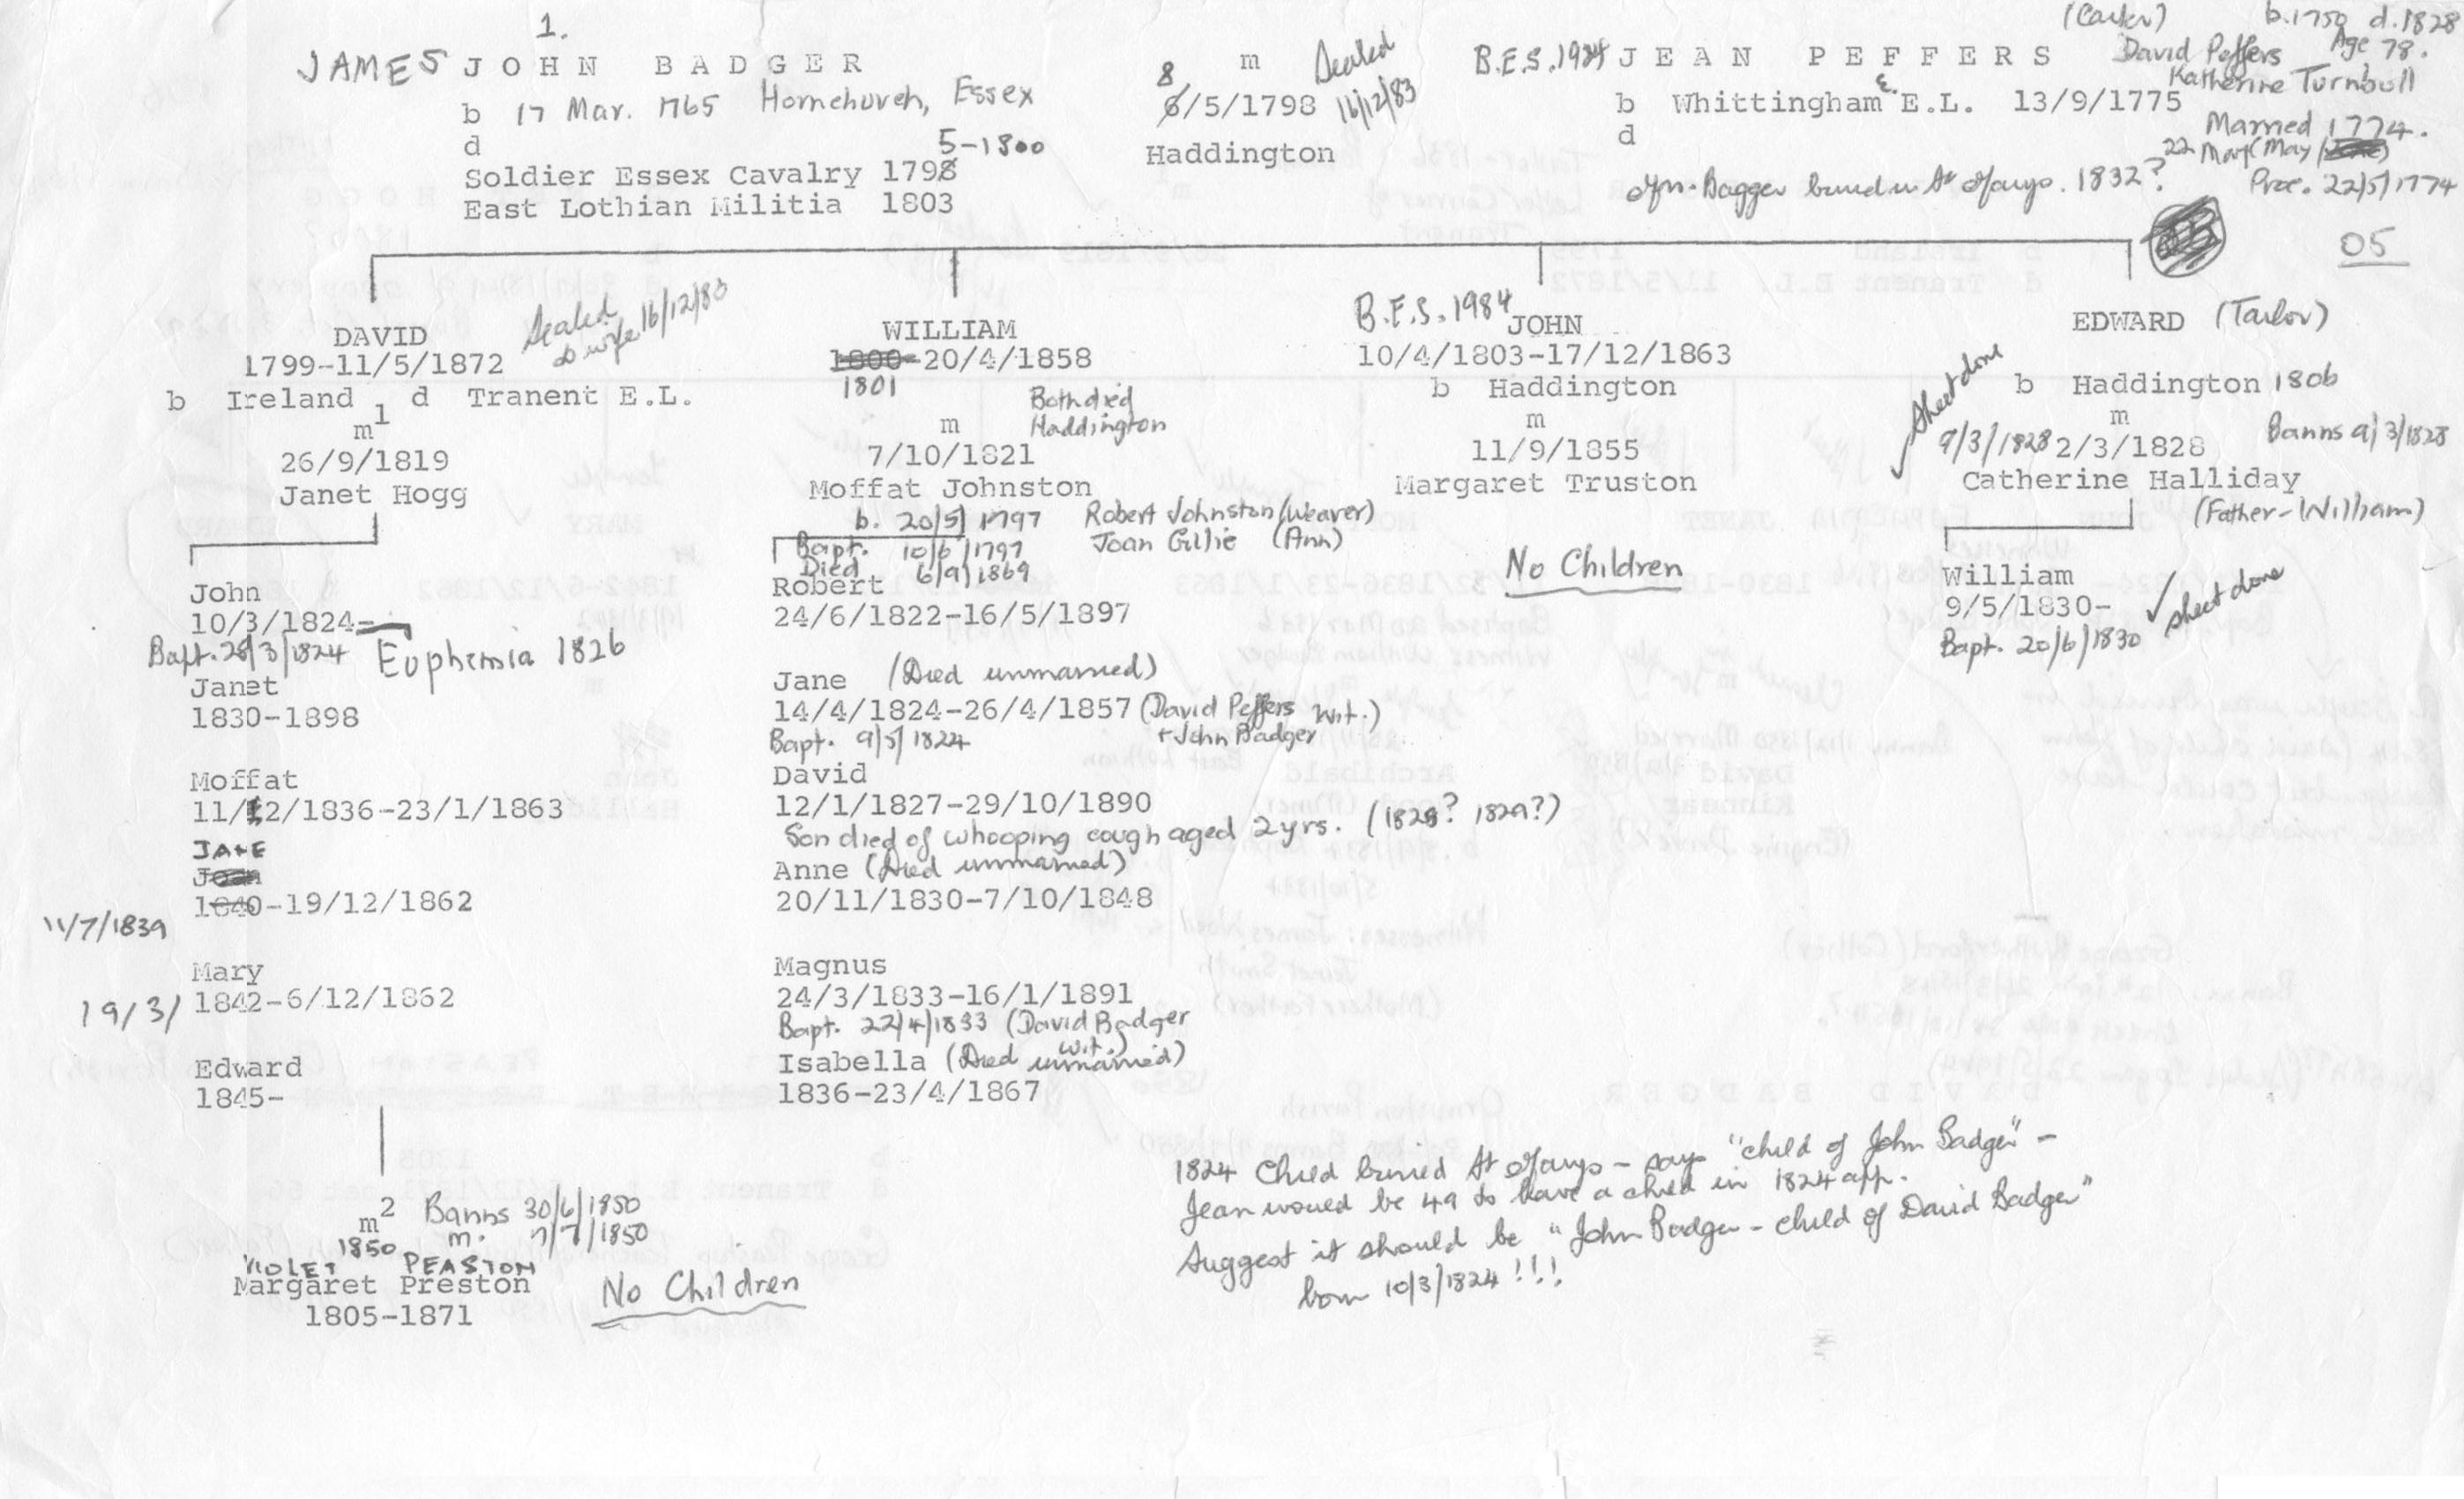 1.
JAMES JOHN BADGER
b 17 Mar. 1765 Hornchurch, Essex
d
5-1800
Soldier Essex Cavalry 1798
East Lothian Militia 1803
m Sealed
8
6/5/1798 16/12/83
Haddington
B.E.S. 1984 JEAN PEFFERS
b Whittingham E.L. 13/9/1775
d
(Carter) b.1750 d.1828
David Peffers Age 78.
&
Katherine Turnbull
Married 1774.
22 May (May
Proc. 22/5/1774
Bagger buried in St Marys. 1832?
05
DAVID
1799-11/5/1872
Sealed
wife 16/12/83
b Ireland d Tranent E.L.
m1
26/9/1819
Janet Hogg
John
10/3/1824-
Bapt. 28/3/1824 Euphemia 1826
Janet
1830-1898
Moffat
11/12/1836-23/1/1863
JANE
Joan
1840-19/12/1862
11/7/1839
Mary
19/3/ 1842-6/12/1862
Edward
1845-
m2 Banns 30/6/1850
1850 m. 7/7/1850
VIOLET PEASTON
Margaret Preston
1805-1871
No Children
WILLIAM
1800-20/4/1858
1801
Both died
Haddington
m
7/10/1821
Moffat Johnston
b. 20/5/1797 Robert Johnston (Weaver)
Bapt. 10/6/1797 Joan Gillie (Ann)
Died 6/9/1869
Robert
24/6/1822-16/5/1897
Jane (Died unmarried)
14/4/1824-26/4/1857 (David Peffers Wit.)
Bapt. 9/5/1824 + John Badger
David
12/1/1827-29/10/1890
Son died of whooping cough aged 2 yrs. (1828? 1829?)
Anne (Died unmarried)
20/11/1830-7/10/1848
Magnus
24/3/1833-16/1/1891
Bapt. 22/4/1833 (David Badger
wit.)
Isabella (Died unmarried)
1836-23/4/1867
B.E.S. 1984 JOHN
10/4/1803-17/12/1863
b Haddington
m
11/9/1855
Margaret Truston
No Children
EDWARD (Tailor)
sheet done
b Haddington 1806
m
9/3/1828 2/3/1828 Banns 9/3/1828
Catherine Halliday
(Father-William)
William
9/5/1830-
sheet done
Bapt. 20/6/1830
1824 Child buried St Marys - says "child of John Badger" -
Jean would be 49 to have a child in 1824 app.
Suggest it should be "John Badger - child of David Badger"
born 10/3/1824 !!!